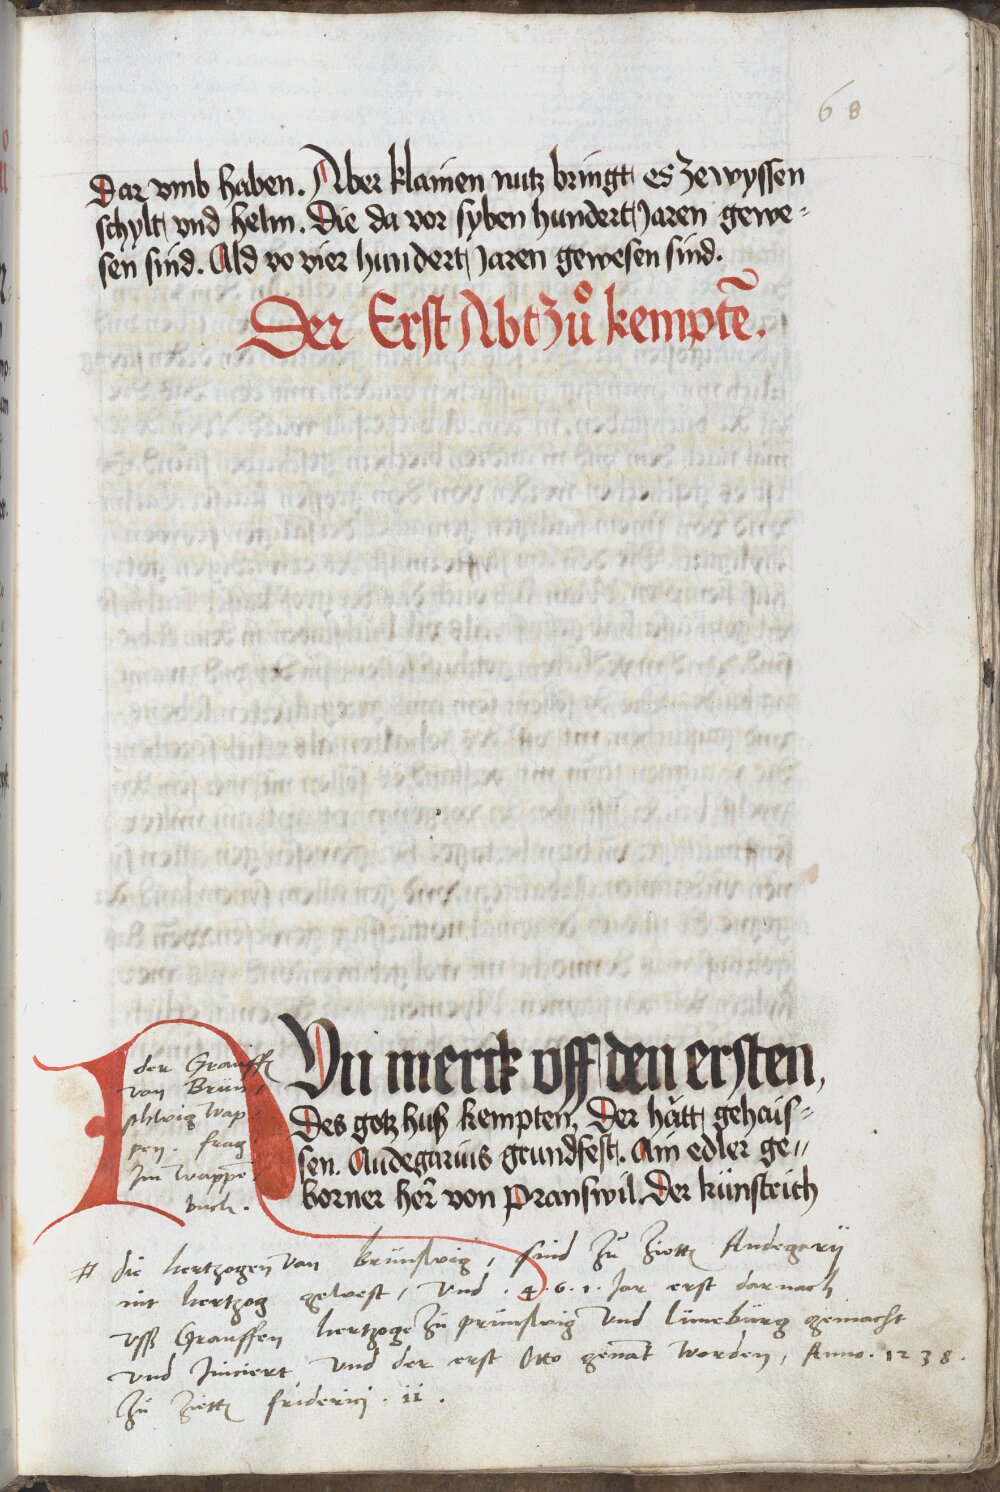 68
Dar vmb haben. Aber klainen nutz bringt es ze wyssen
schylt vnd helm. Die da vor syben hundert Jaren gewe-
sen sind. Ald vo vier hundert Jaren gewesen sind.
Der Erst Abt zů kemptē.
NVn merck vff den ersten,
Des gotz huß kempten, Der hātt gehais-
sen. Andegarius grundfest. Ain edler ge-
borner her̄ von Pranswil. Der künstrich
der Grauffē
von Brün-
schwig wap-
pen. frag
Im wappē
buch.
# die hertzogen von brünßwig, sind zů Ziettē Andegarij
nit hertzog gewest, vnd .4.6.1. Jar erst darnach
vss Grauffen hertzoge zů prünßwig vnd lüneburg gemacht
vnd Jnuiert vnd der erst Otto genāt worden, Anno. 1238.
Zů Ziettē friderici .ii.